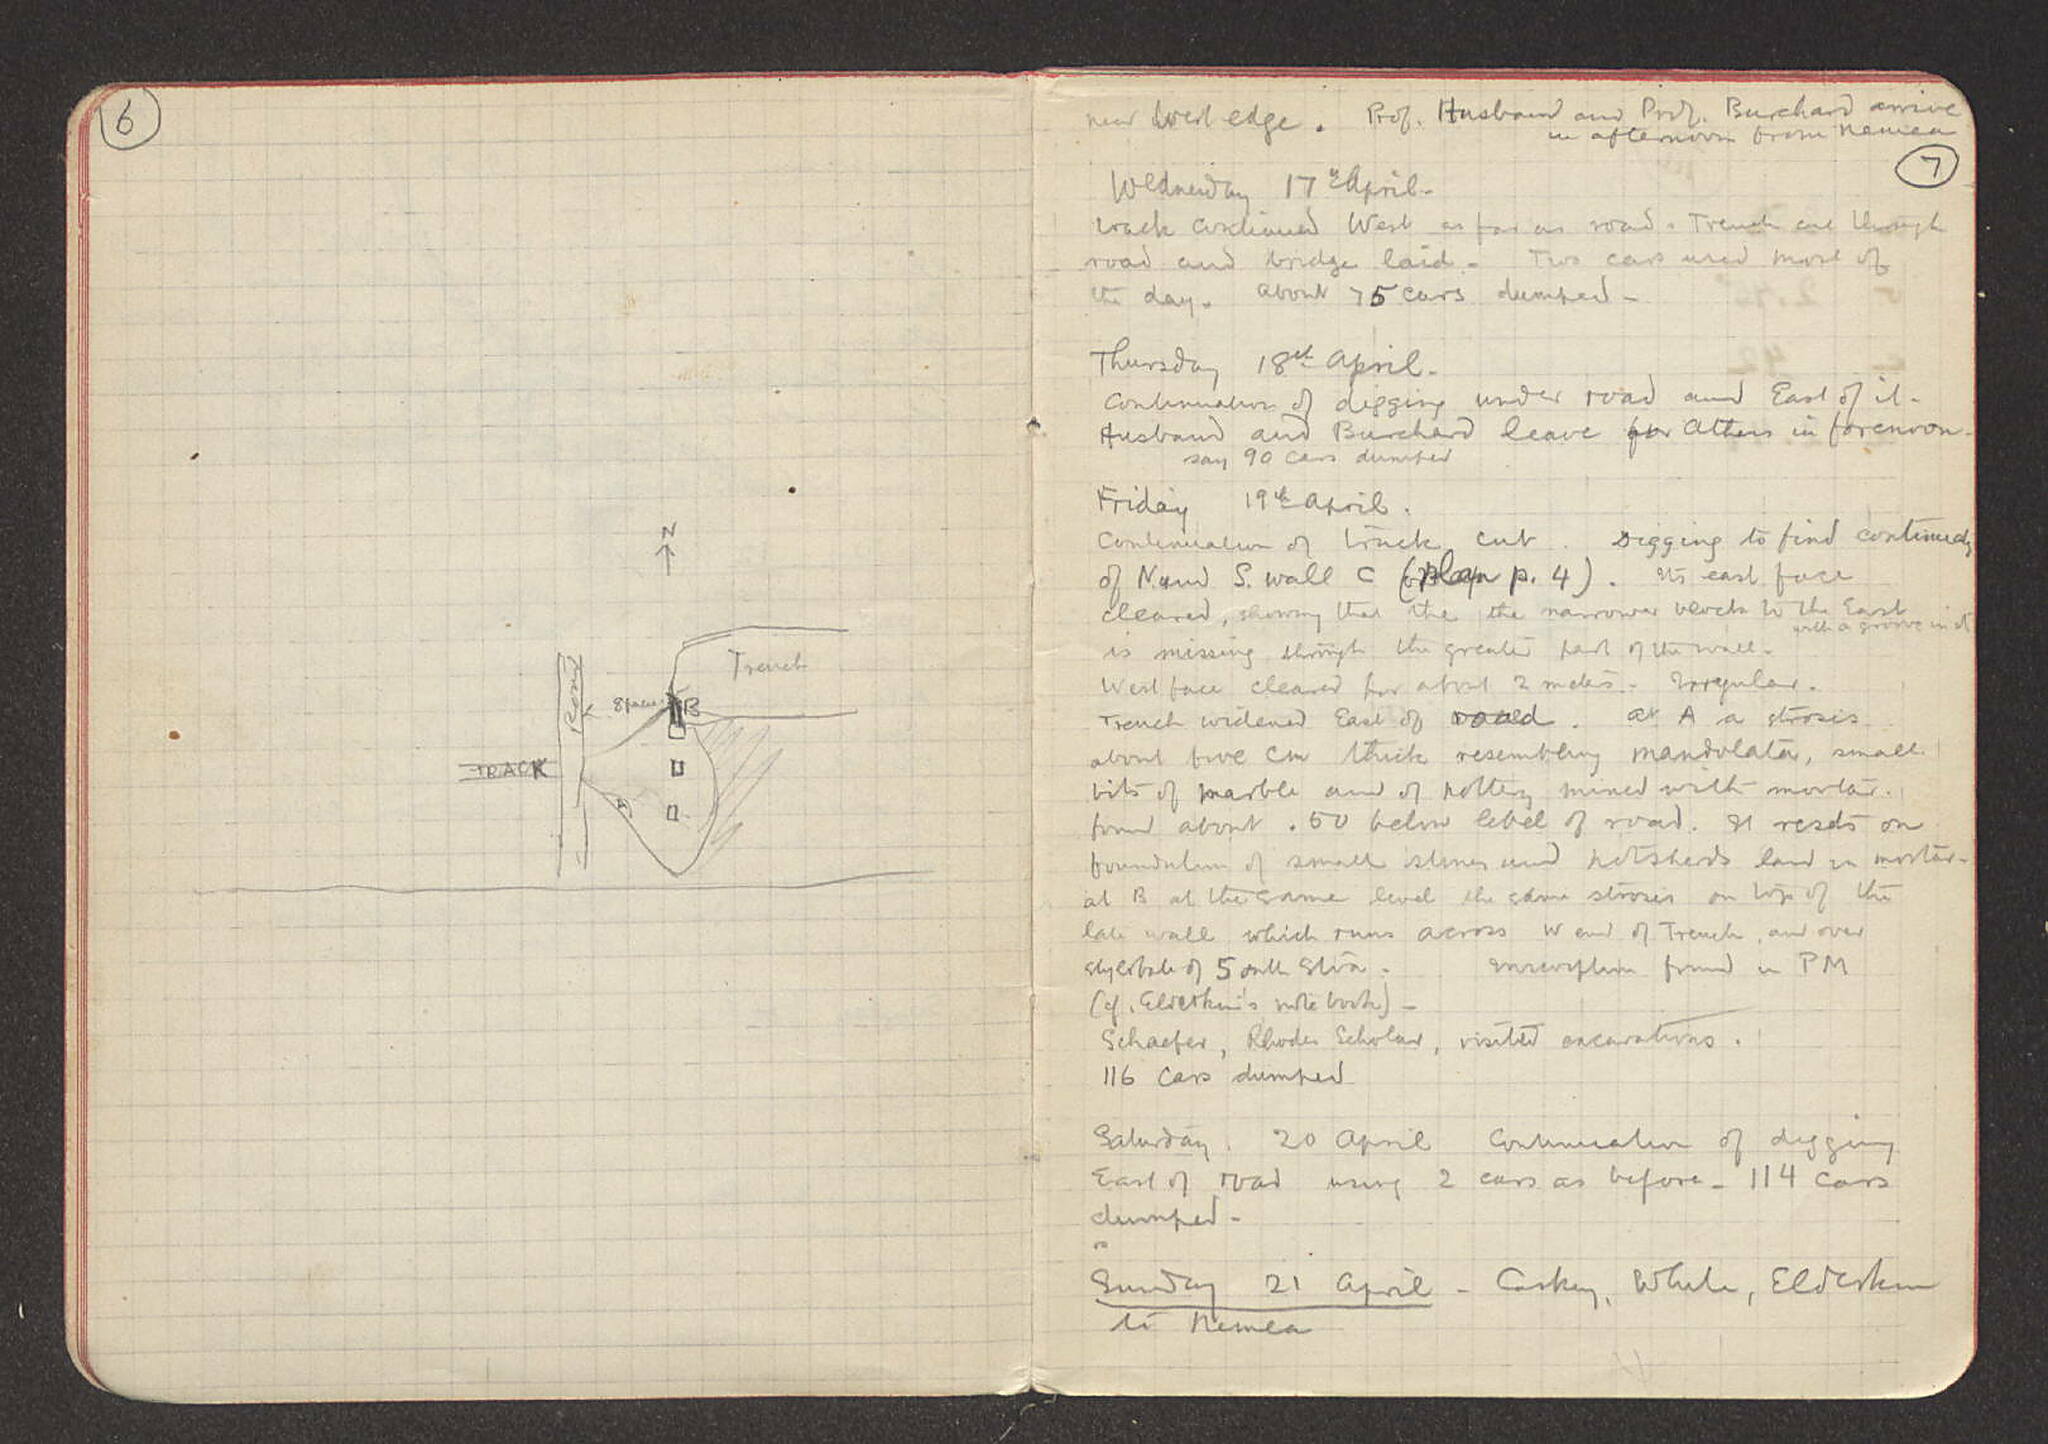 6
N
Trench
Road
B
TRACK
A
near West edge. Prof. Husband and Prof. Burchard arrive
in afternoon from Nemea
7
Wednesday 17th April.
track continued West as far as road. Trench cut through
road and bridge laid. Two cars used most of
the day. About 75 cars dumped.
Thursday 18th April.
Continuation of digging under road and East of it.
Husband and Burchard leave for Athens in forenoon.
say 90 cars dumped
Friday 19th April.
Continuation of track cut. Digging to find continuity
of N. and S. wall C (plan p. 4). Its east face
cleared, showing that the the narrower block to the East
with a groove in it
is missing through the greater part of the wall.
West face cleared for about 2 meters. Irregular.
Trench widened East of road. At A a strosis
about five cm thick resembling mandolata, small
bits of marble and of pottery mixed with mortar.
found about .50 below level of road. It rests on
foundation of small stones and potsherds laid in mortar.
at B at the same level the same strosis on top of the
late wall which runs across W end of Trench, and over
stylobate of South Stoa. Inscription found in PM
(cf. Elderkin's notebook).
Schaefer, Rhodes Scholar, visited excavations.
116 cars dumped
Saturday. 20 April Continuation of digging
East of road using 2 cars as before. 114 cars
dumped.
Sunday 21 April - Caskey, White, Elderkin
to Nemea